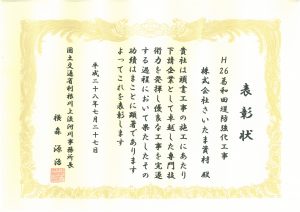 表彰状
H26葛和田堤防強化工事
株式会社さいたま資材 殿
貴社は頭書工事の施工にあたり
下請企業として卓越した専門技
術力を発揮し優良な工事を完遂
する過程において果たしたその
功績はまことに顕著であります
よってこれを表彰します
平成二十八年七月二十七日
国土交通省利根川上流河川事務所長
横森 源治